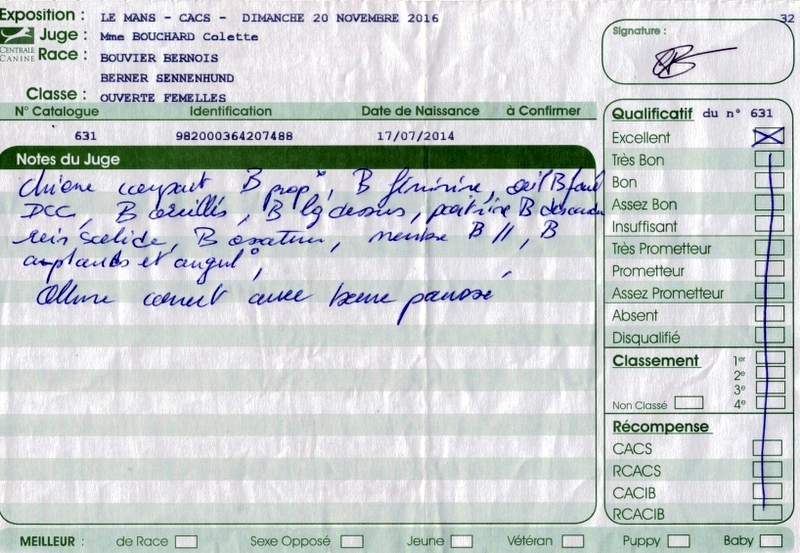 Exposition : LE MANS - CACS - DIMANCHE 20 NOVEMBRE 2016
32
CENTRALE CANINE
Juge : Mme BOUCHARD Colette
Race : BOUVIER BERNOIS
BERNER SENNENHUND
Classe : OUVERTE FEMELLES
Signature :
N° Catalogue Identification Date de Naissance à Confirmer
631 982000364207488 17/07/2014
Notes du Juge
chienne compact B prop°, B féminine, oeil B
DCC, B oreilles, B lg dessus, poitrine B
rein solide, B ossature, membre B //, B
aplombs et angul°,
Allure correct avec bonne
Qualificatif du n° 631
Excellent
Très Bon
Bon
Assez Bon
Insuffisant
Très Prometteur
Prometteur
Assez Prometteur
Absent
Disqualifié
Classement 1er
2e
3e
Non Classé 4e
Récompense
CACS
RCACS
CACIB
RCACIB
MEILLEUR : de Race Sexe Opposé Jeune Vétéran Puppy Baby